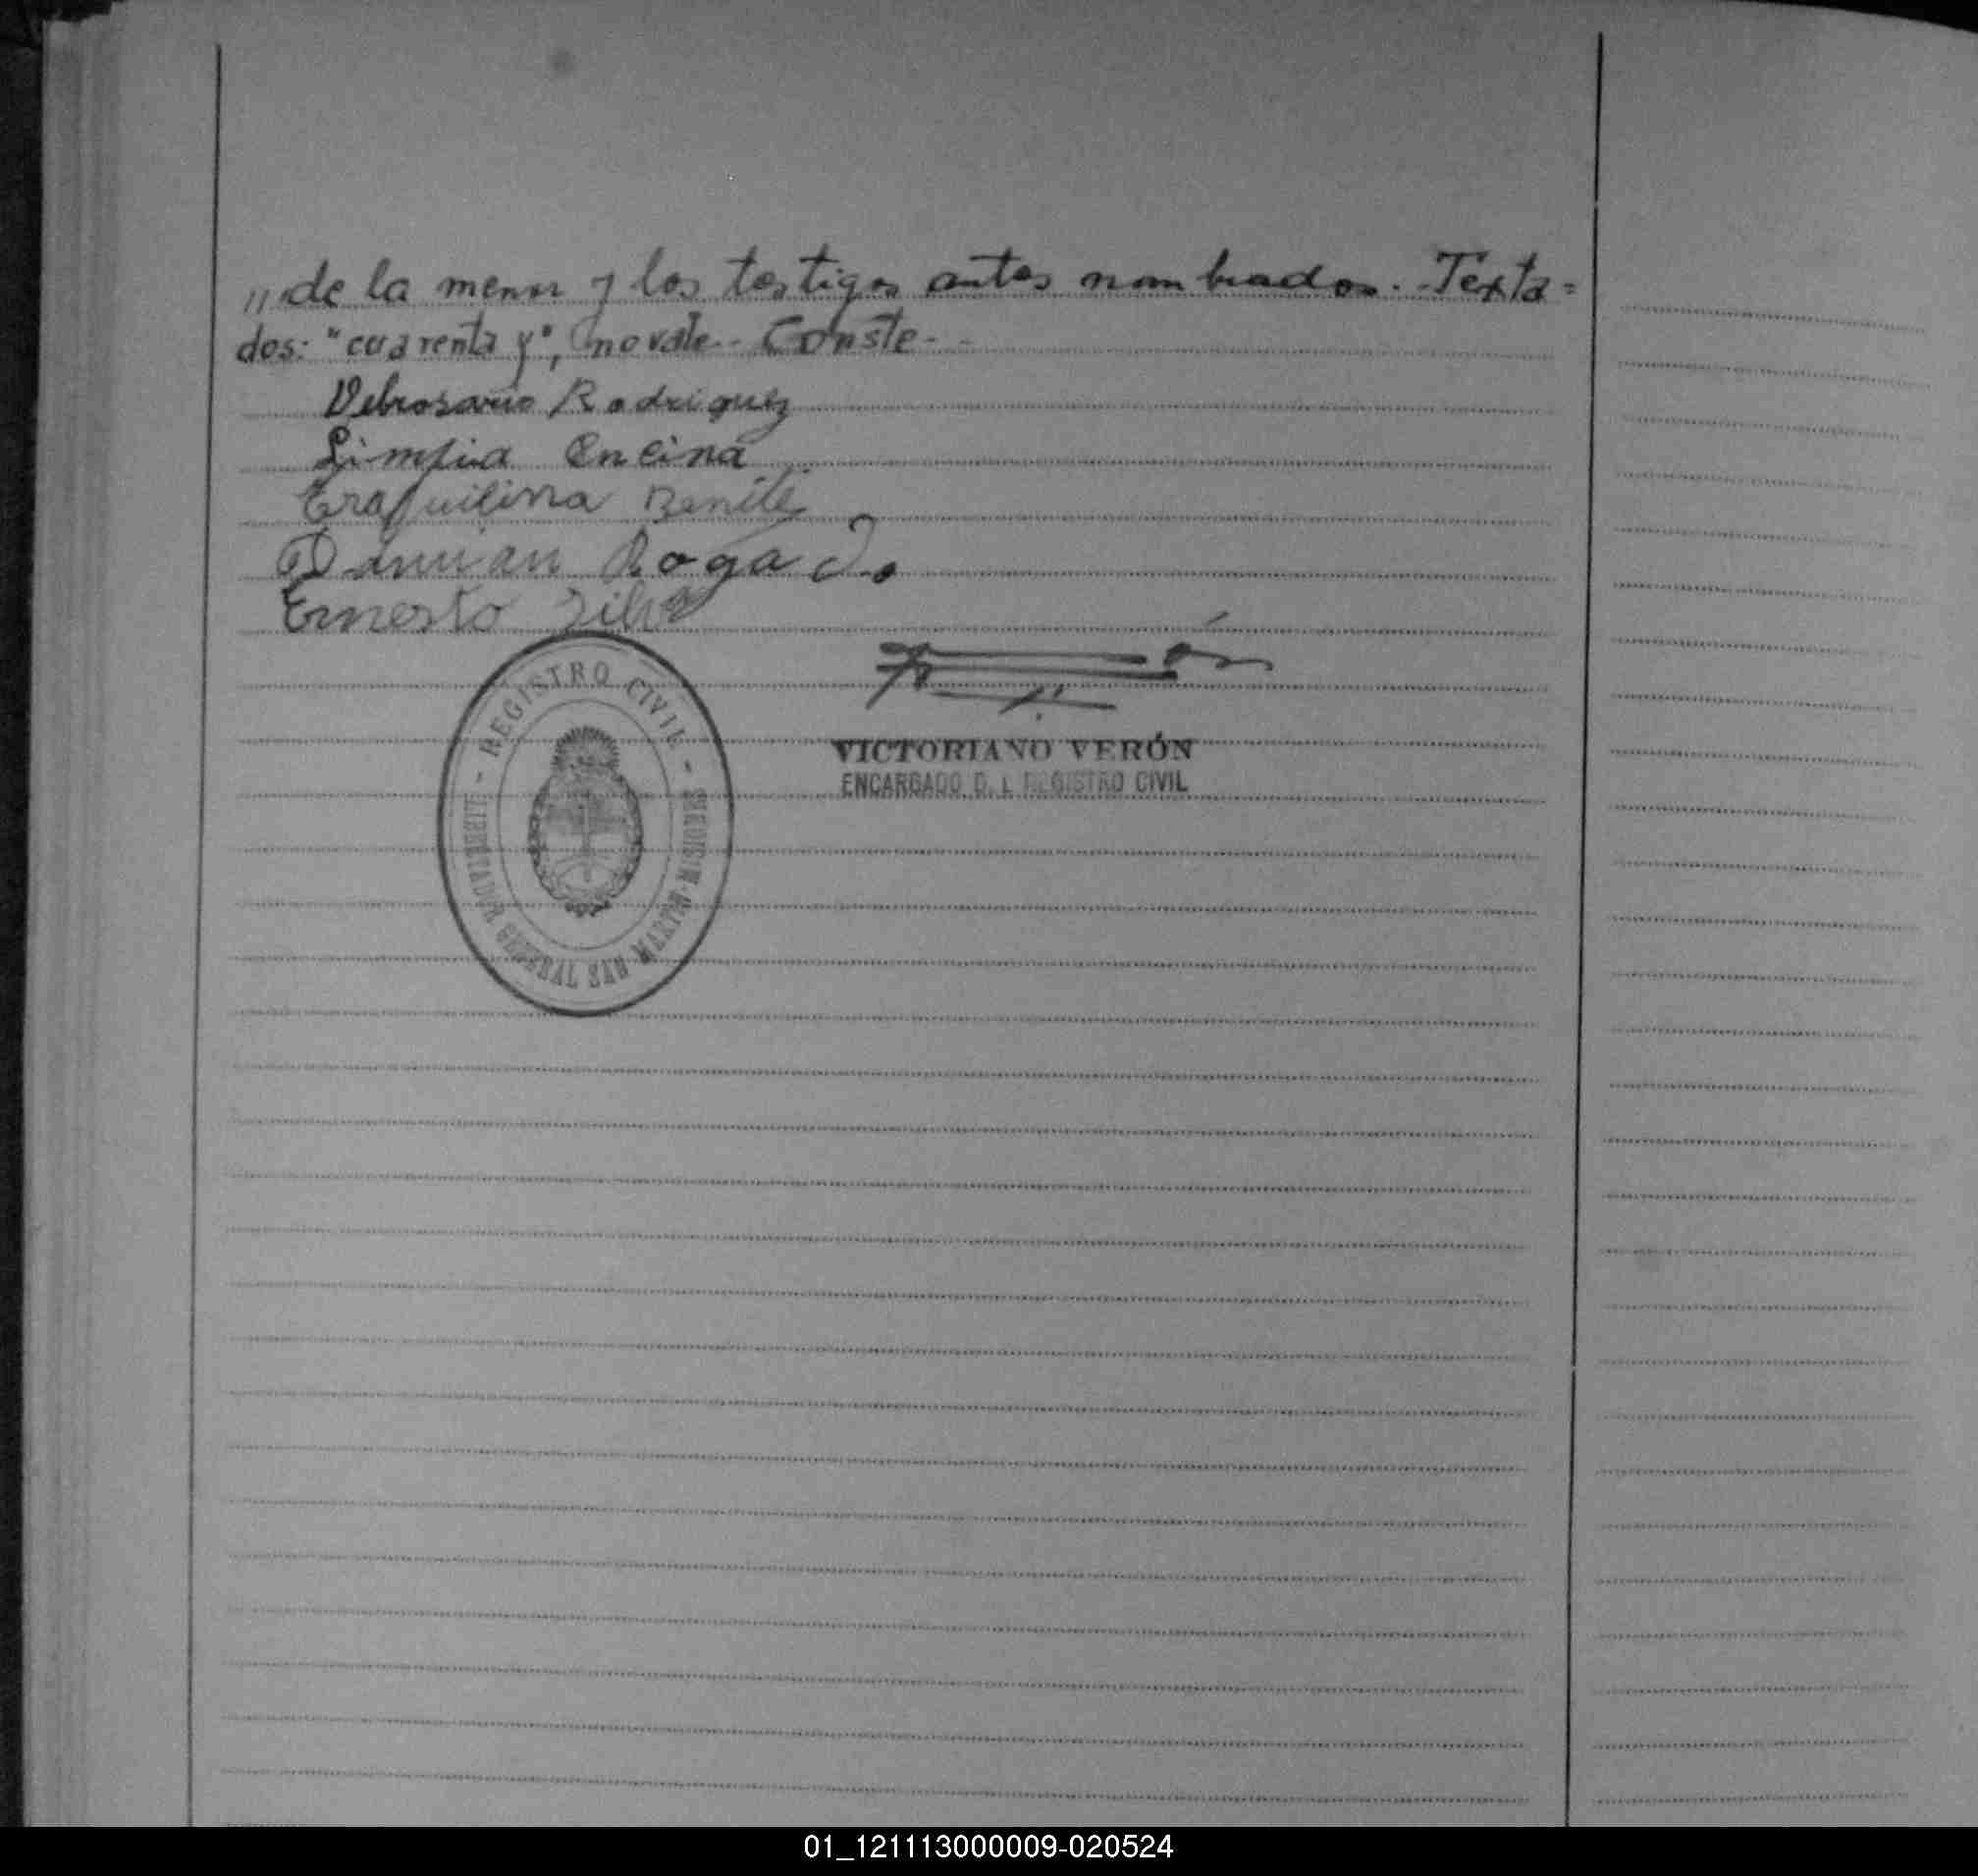 ,, de la menor y los testigos antes nombrados.- Texta=
dos: "cuarenta y", no vale.- Conste.-
Rodriguez
Limpia Encina
Benite
Damian Rogado
Ernesto Silva
VICTORIANO VERÓN
ENCARGADO D. L REGISTRO CIVIL
- REGISTRO CIVIL -
LIBERTADOR GENERAL SAN MARTIN
01_121113000009-020524